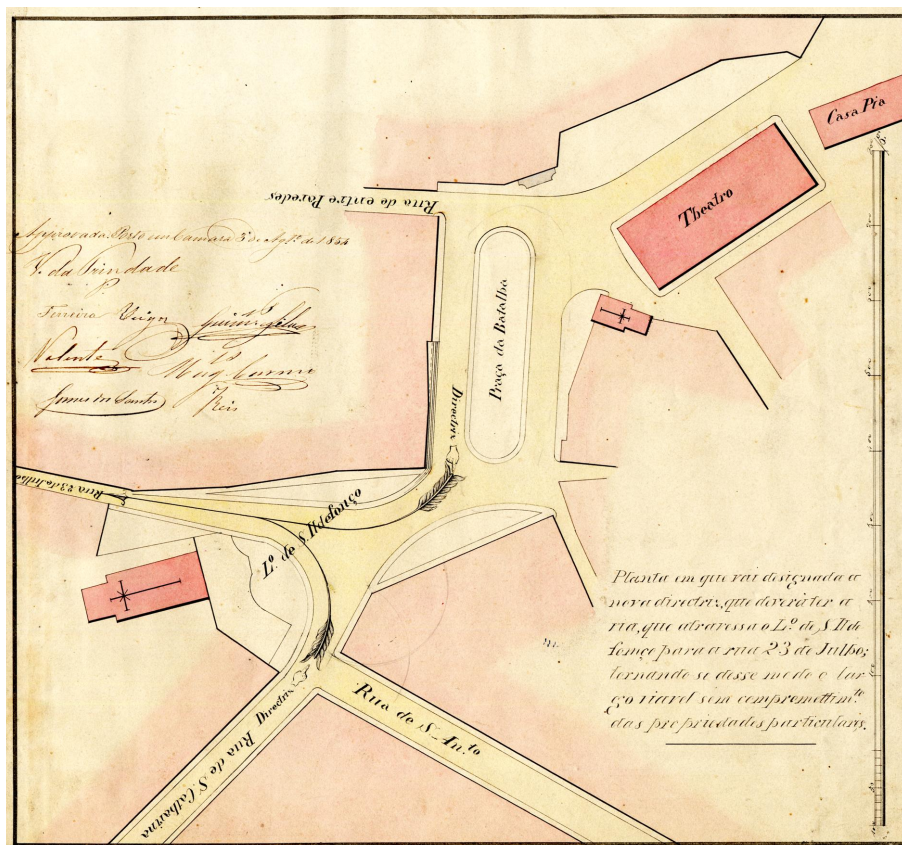 Casa Pia
Theatro
Rua de entre Paredes
Approvada. Porto em Camara 5 de Ag.to de 1854
V. da Trindade
P.
Ferreira Veiga
Valente
Reis
Praça da Batalha
Directriz
Rua 23 de Julho
L.o de S. Ildefonço
Directriz
Rua de S. Catharina
Rua de S.to An.to
Planta em que vai designada a
nova directriz, que deverá ter a
rua, que atravessa o L.o de S. Ilde
fonço para a rua 23 de Julho;
tornando-se desse modo o lar
go viavel sem comprometim.to
das propriedades particulares.